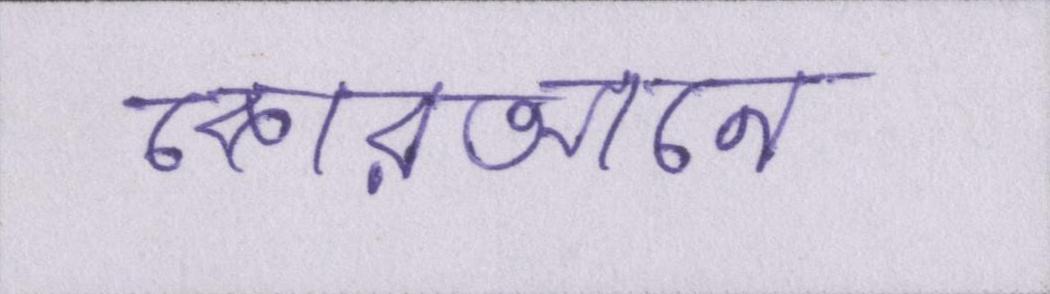 কোরআনে